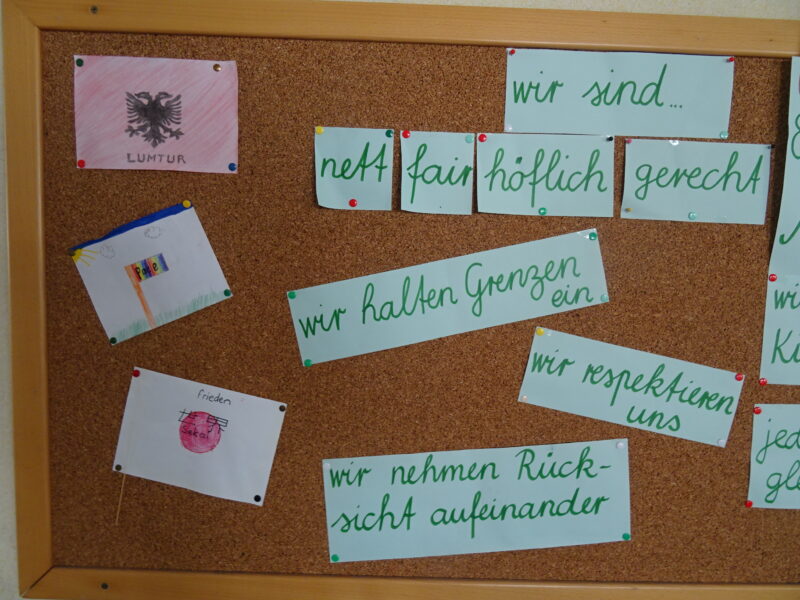 LUMTUR
frieden
世界
Sekai
wir sind...
nett fair höflich gerecht
wir halten Grenzen
ein
wir respektieren
uns
wir nehmen Rück-
sicht aufeinander
wi
jed
gle